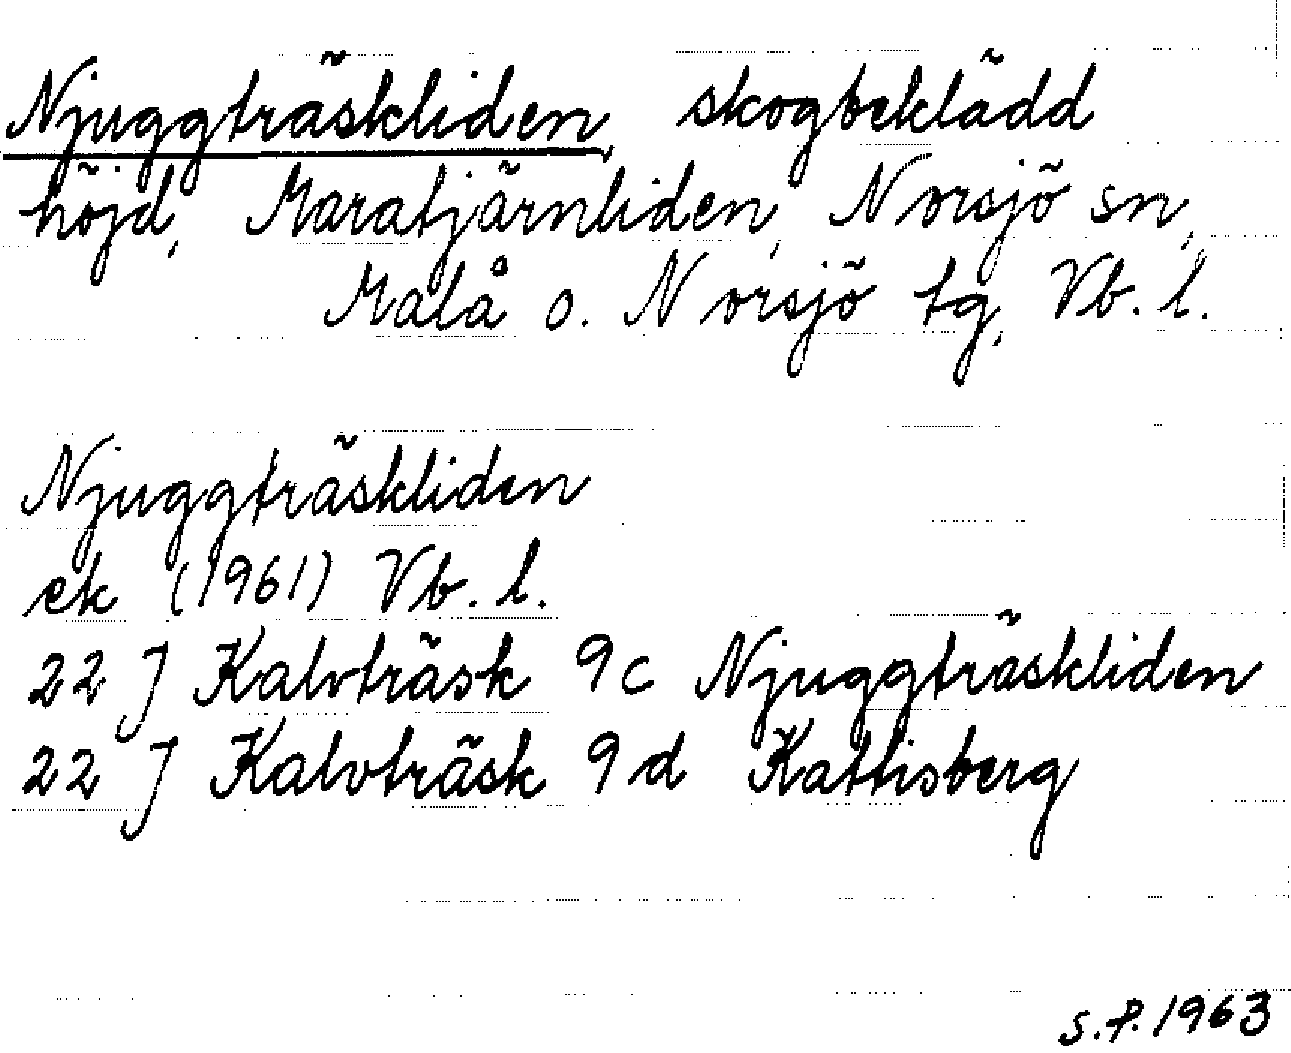 Njuggträskliden, skogbeklädd
höjd, Maratjärnliden, Norsjö sn,
Malå o. Norsjö tg, Vb. l.
Njuggträskliden
ek (1961) Vb. l.
22 J Kalvträsk 9c Njuggträskliden
22 J Kalvträsk 9d Kattisberg
S.P. 1963